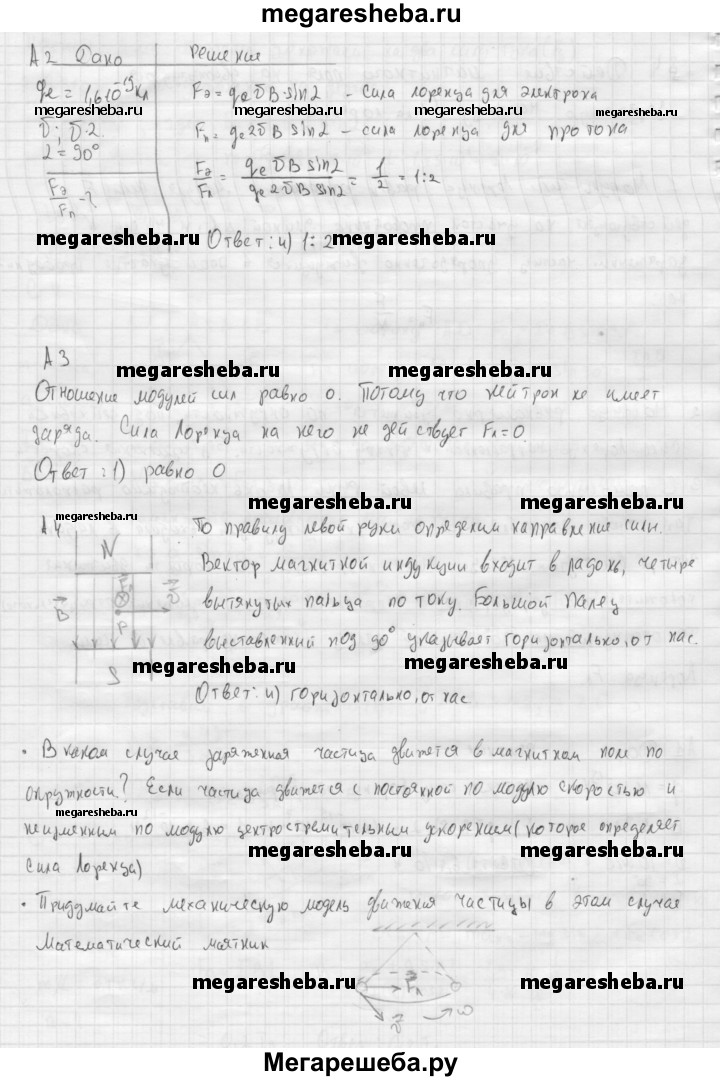 megaresheba.ru
А2 Дано Решение
qe = 1,6·10⁻¹⁹ Кл Fэ = qе υ B · sin2 - сила лоренца для электрона
megaresheba.ru megaresheba.ru megaresheba.ru
υ; υ·2. Fп = qе 2υ B sin2 – сила лоренца для протона
2 = 90°
Fэ/Fп - ? Fэ/Fп = qе υ B sin2 / qе 2υ B sin2 = 1/2 = 1:2
megaresheba.ru Ответ: 4) 1:2 megaresheba.ru
А3
megaresheba.ru megaresheba.ru
Отношение модулей сил равно 0. Потому что нейтрон не имеет
заряда. Сила Лоренца на него не действует Fл=0.
Ответ: 1) равно 0
megaresheba.ru megaresheba.ru
megaresheba.ru
А4 По правилу левой руки определим направление силы.
N Вектор магнитной индукции входит в ладонь, четыре
B υ вытянутых пальца по току. Большой палец
P выставленный под 90° указывает горизонтально, от нас.
megaresheba.ru megaresheba.ru
S Ответ: 4) горизонтально, от нас
• В каком случае заряженная частица движется в магнитном поле по
окружности? Если частица движется с постоянной по модулю скоростью и
megaresheba.ru
неизменным по модулю центростремительным ускорением (которое определяет
megaresheba.ru megaresheba.ru
сила Лоренца)
• Придумайте механическую модель движения частицы в этом случае
Математический маятник
megaresheba.ru Fл megaresheba.ru
υ ω
Мегарешеба.ру